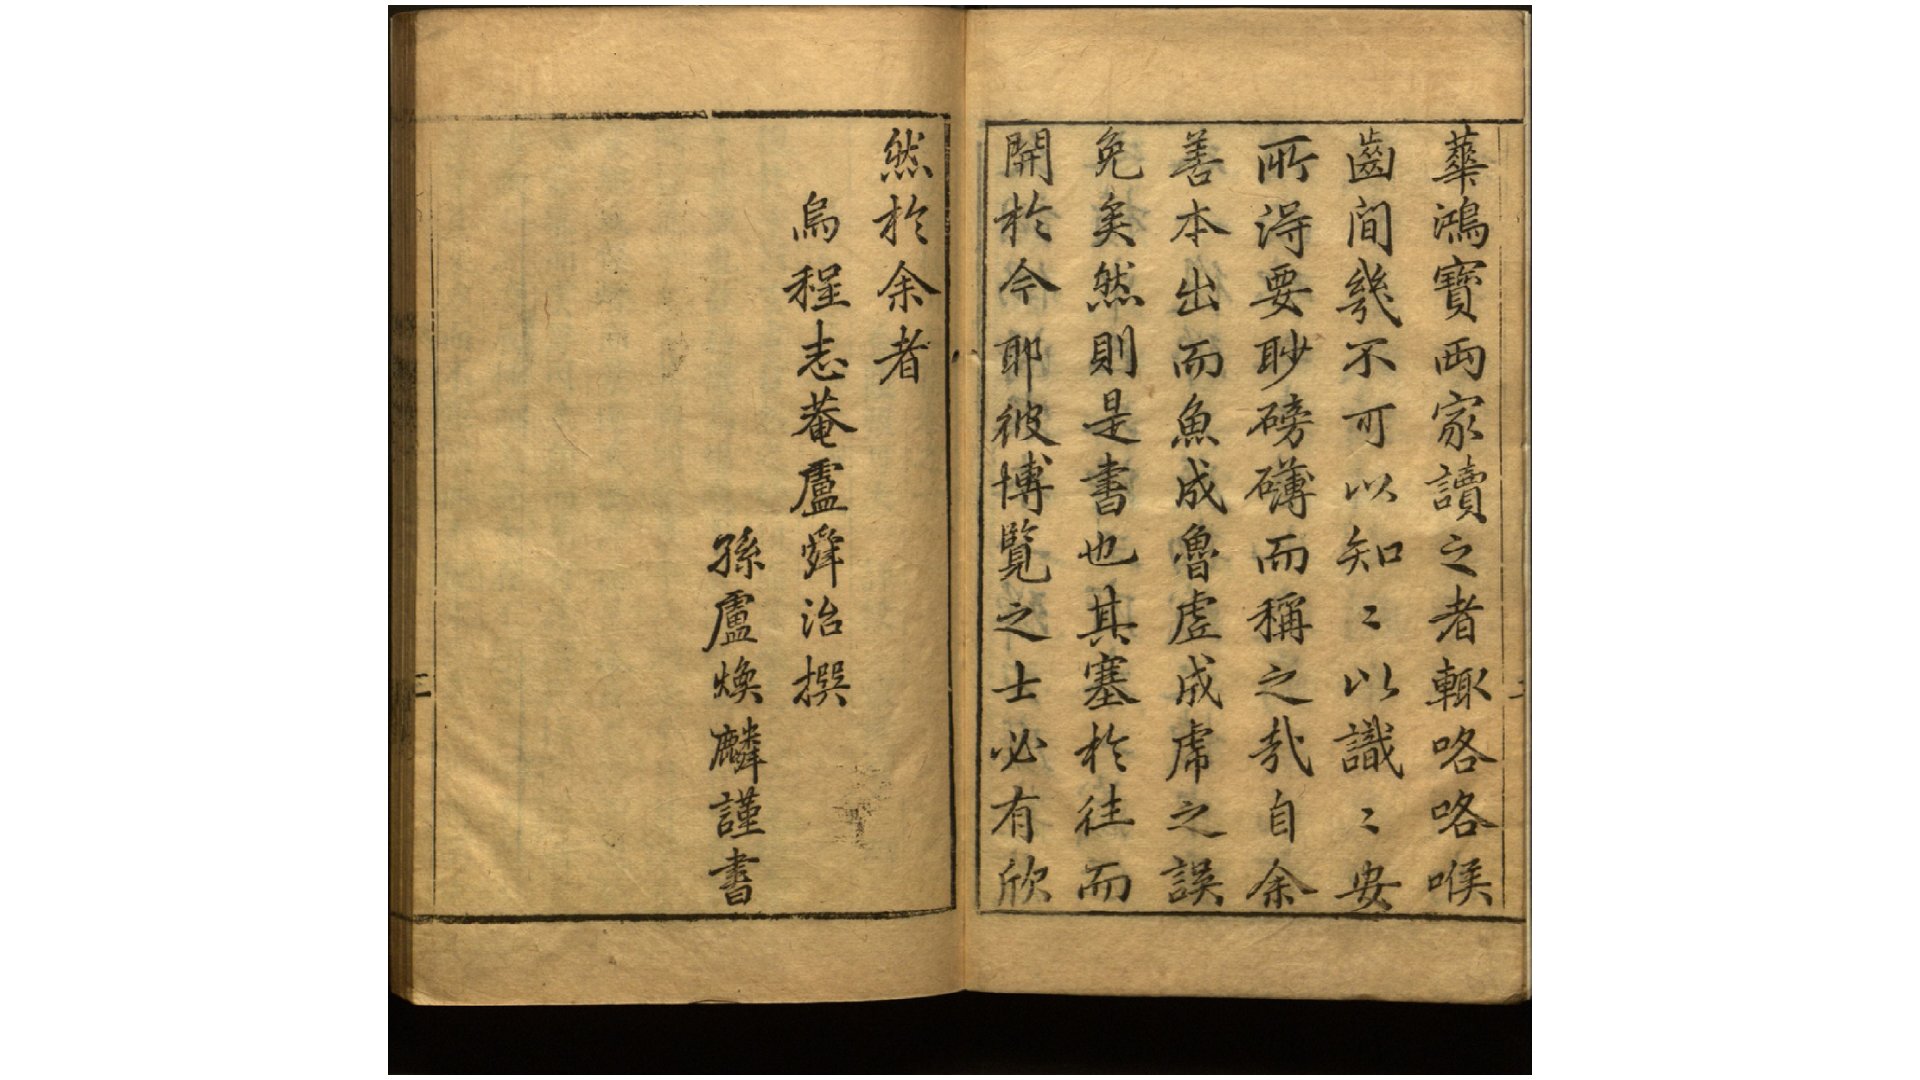 華鴻寶両家讀之者輙咯咯喉
齒間幾不可以知〻以識〻安
所淂要眇磅礴而稱之㢤自余
善本出而魚成魯虗成虎之誤
免矣然則是書也其塞於往而
開於今耶彼博覧之士必有欣
然於余者
烏程志菴盧舜治撰
孫盧煥麟謹書
二
三